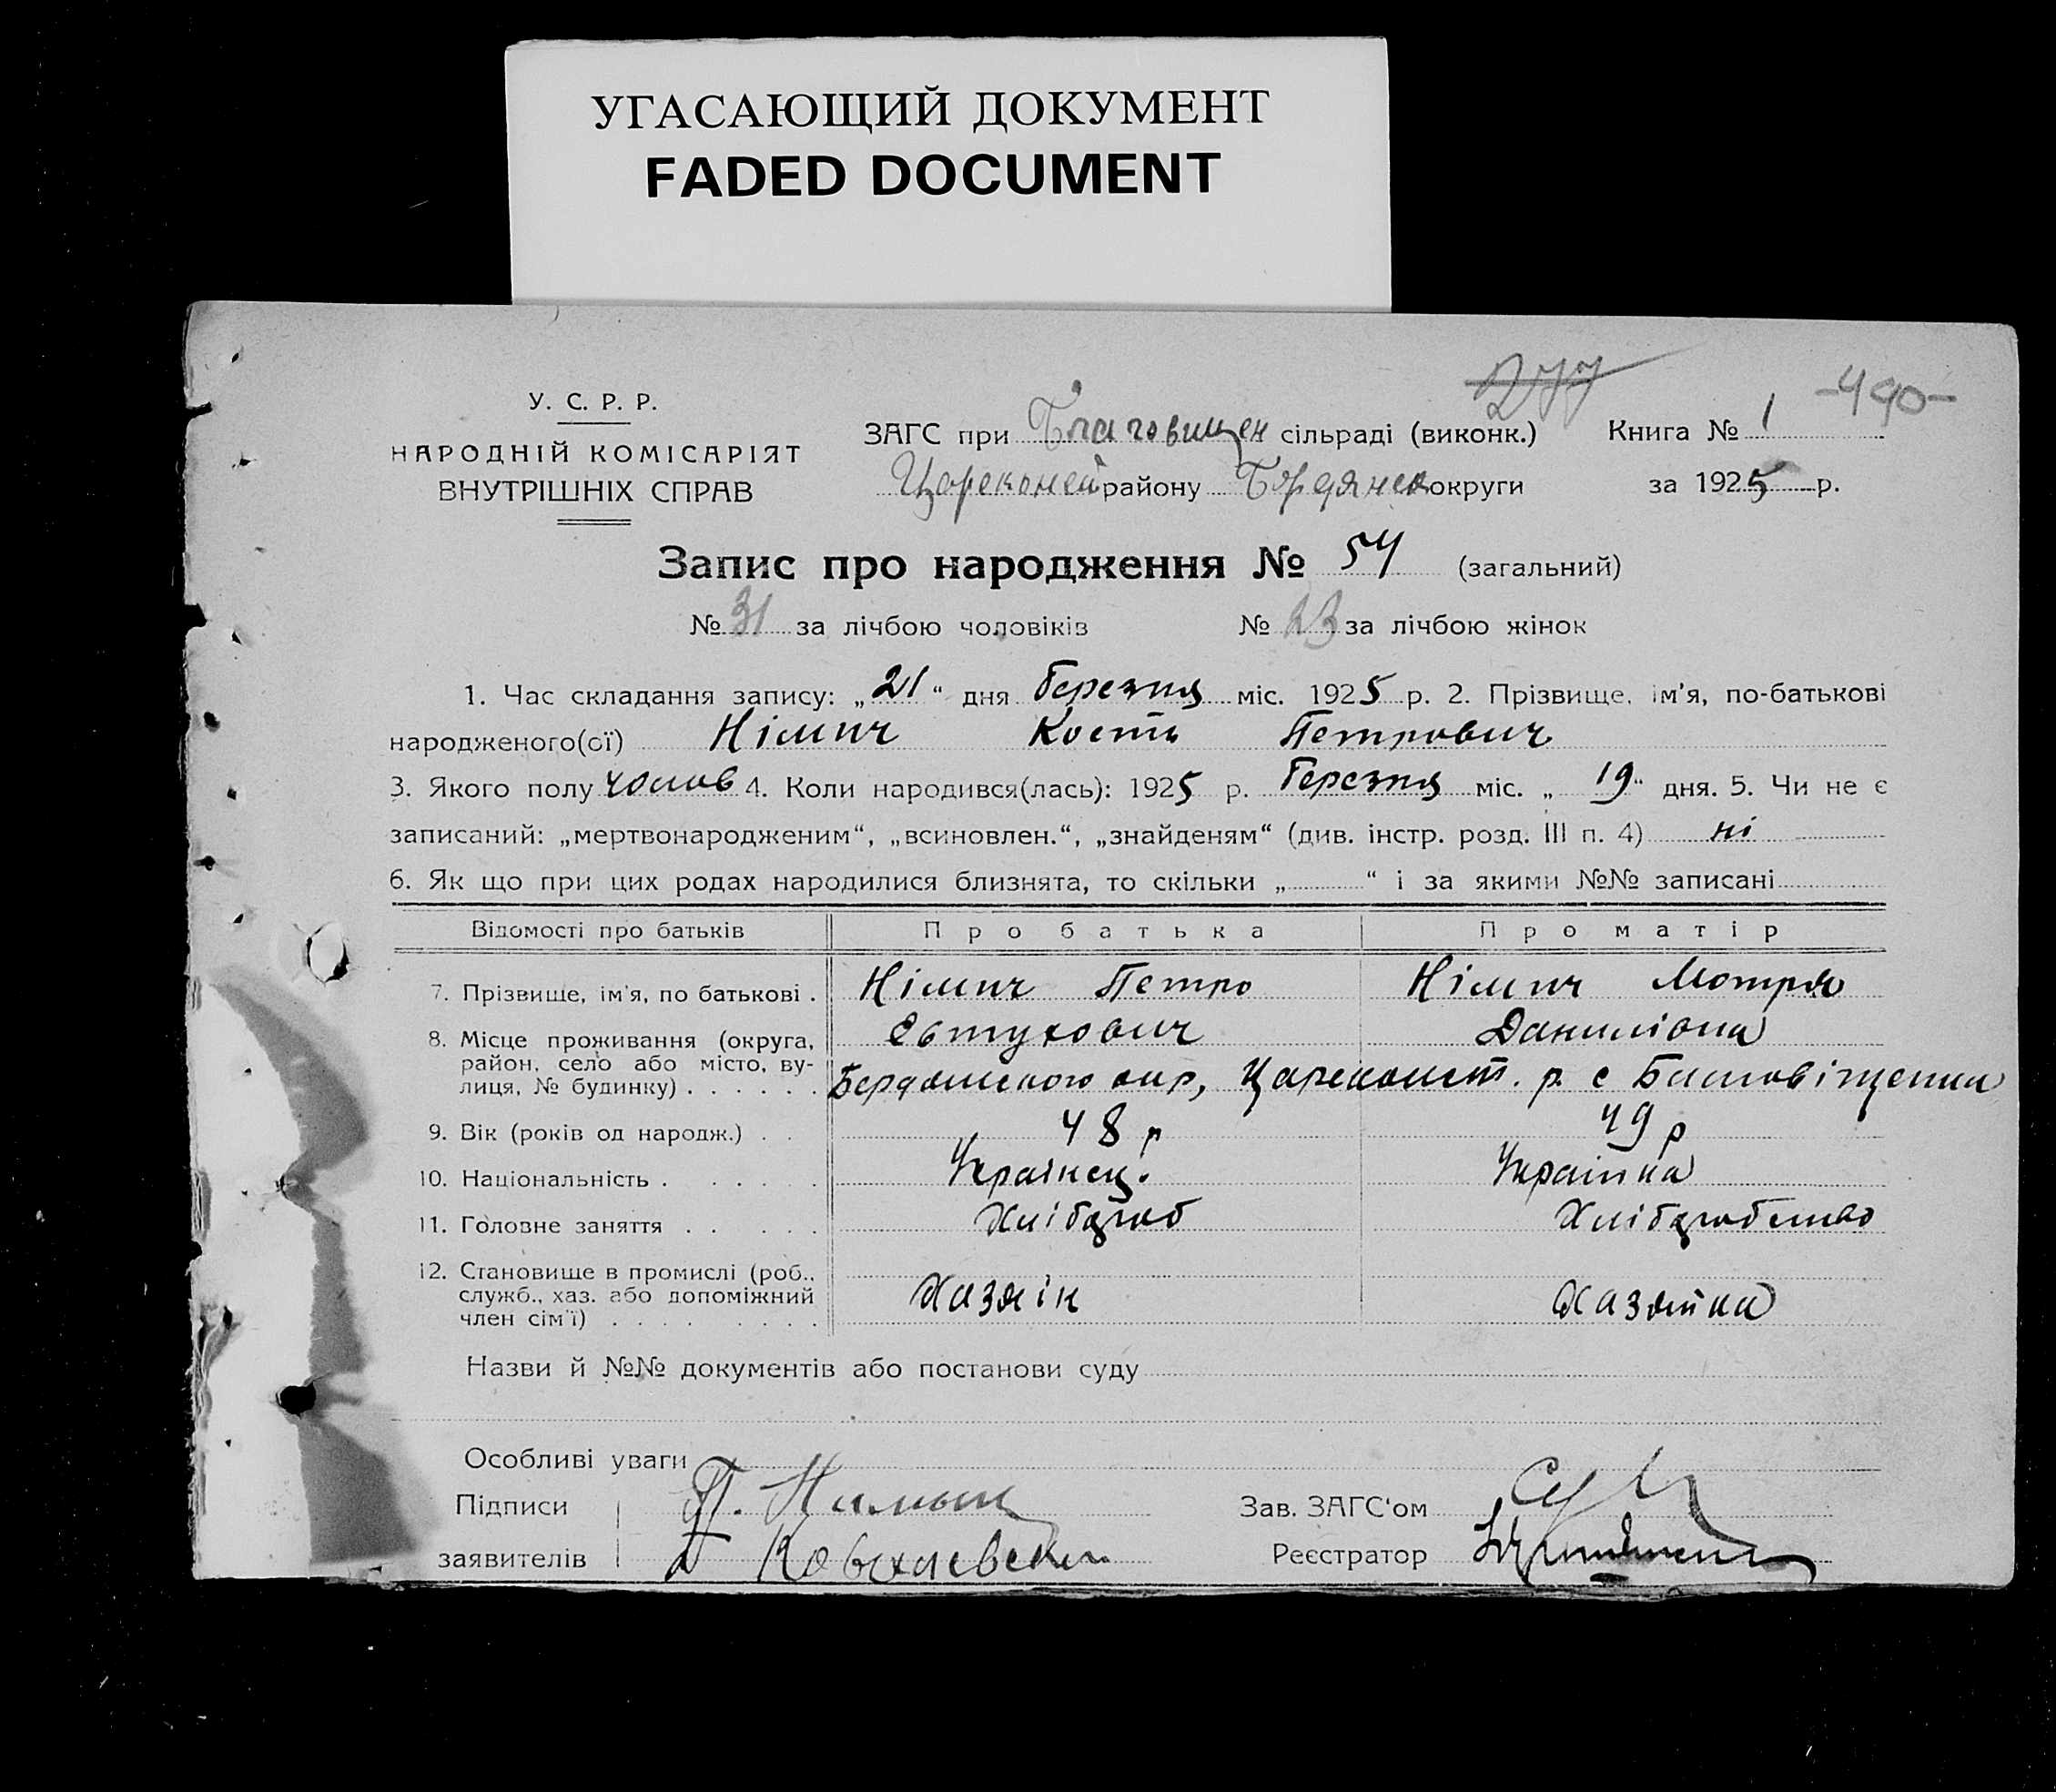 УГАСАЮЩИЙ ДОКУМЕНТ
FADED DOCUMENT
277 -490-
У. С. Р. Р.
НАРОДНІЙ КОМІСАРІЯТ
ВНУТРІШНІХ СПРАВ
ЗАГС при Благовищен сільраді (виконк.) Книга № 1
району Бердянск округи за 1925 р.
Запис про народження № 54 (загальний)
№ 31 за лічбою чоловіків № 23 за лічбою жінок
1. Час складання запису: „21“ дня березня міс. 1925 р. 2. Прізвище, ім'я, по-батькові
народженого(ої) Німич Кость Петрович
3. Якого полу чолов 4. Коли народився(лась): 1925 р. березня міс. „19“ дня. 5. Чи не є
записаний: „мертвонародженим“, „всиновлен.“, „знайденям“ (див. інстр. розд. III п. 4) ні
6. Як що при цих родах народилися близнята, то скільки „ “ і за якими №№ записані
Відомості про батьків Про батька Про матір
7. Прізвище, ім'я, по батькові . Німич Петро Німич Мотря
Євтухович Данилівна
8. Місце проживання (округа,
район, село або місто, ву-
лиця, № будинку) . . . . . . Бердянського окр, Цареконст. р. с Благовіщенка
9. Вік (років од народж.) . . 48 р 49 р
10. Національність . . . . . . Українец. Українка
11. Головне заняття . . . . . Хлібороб Хліборобство
12. Становище в промислі (роб.,
служб., хаз. або допоміжний
член сім'ї) . . . . . . . . Хазяін Хазяйка
Назви й №№ документів або постанови суду
Особливі уваги
Підписи П. Нимыч Зав. ЗАГС'ом
заявителів Реєстратор